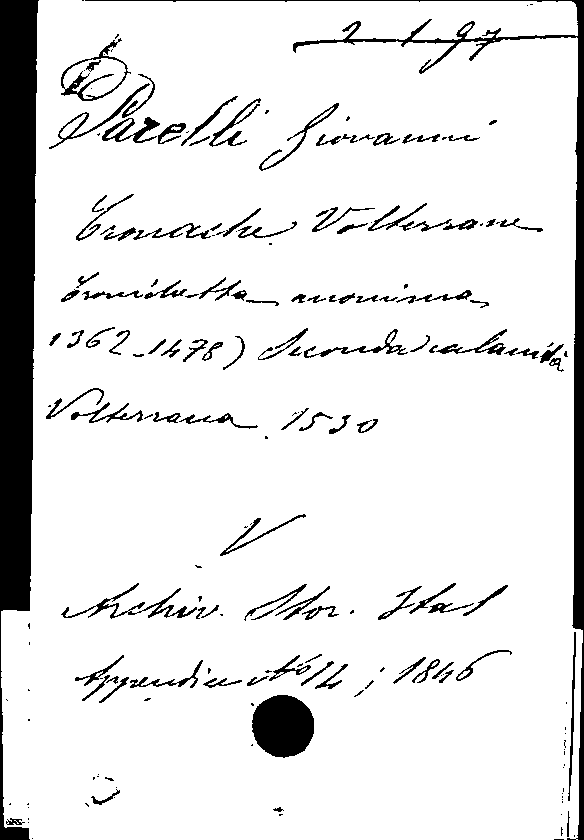 2. 1. 97
Parelli Giovanni
Cronache Volterrane
Cronichetta anonima
1362-1478) Seconda calamità
Volterrana. 1530
V
Archiv. Stor. Ital
Appendice No 14 ; 1846